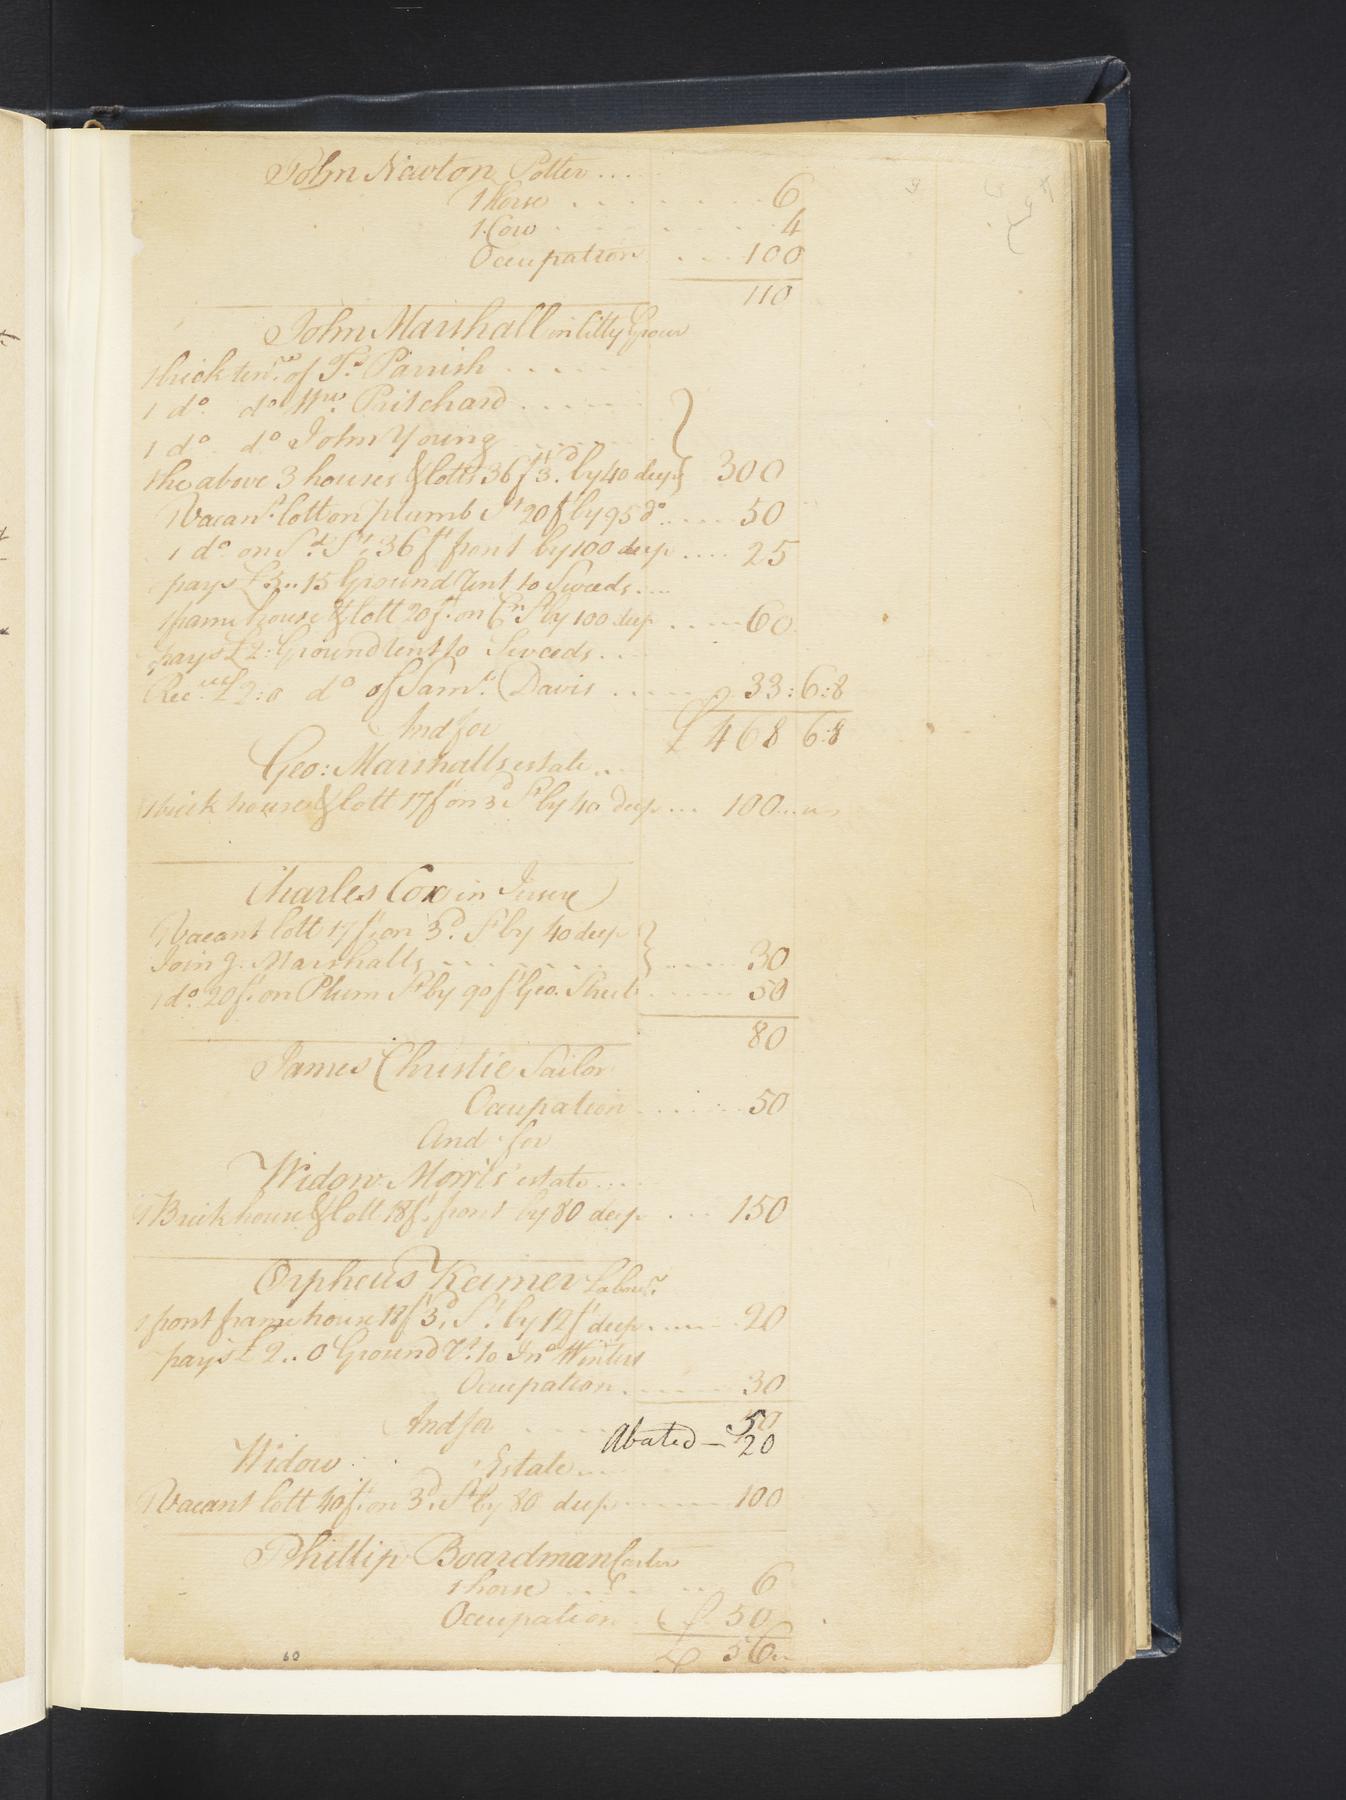 John Newton Potter ....
1 Horse ........ 6
1 Cow ........ 4
Occupation ... 100
110
John Marshall in Citty Grocer
1 brick tenr. of Ts. Parrish .....
1 do. do Wm. Pritchard .....
1 do. do John Young .....
the above 3 houses & lotts 36 ft 3d. by 40 deep 300
1 Vacant. lott on plumb St 20 ft by 95 do ..... 50
1 do on Sd. St. 36 ft front by 100 deep .... 25
pays £3..15 Ground Rent to Sweeds ....
1 frame house & lott 20 ft. on St by 100 deep ..... 60
pays £2: Ground Rent to Sweeds ...
£2:0 do of Saml. Davis ..... 33:6:8
And for £468 6:8
Geo: Marshalls estate ...
1 brick house & lott 17 ft on 3d St by 40 deep ... 100...
Charles Cox in Jersey
1 Vacant lott 17 ft. on 3d. St by 40 deep
Joing. Marshalls ....... 30
1 do. 20 ft. on Plum St by 90 ft Geo. Street ..... 50
80
James Christie Sailor
Occupation ...... 50
And for
Widow Morris' estate ....
1 Brick house & lott 18 ft. front by 80 deep ... 150
Orpheus Keimer Labour.
1 front frame house 18 ft 3d. St. by 12 ft deep ..... 20
pays £2..0 Ground Rt. to Jno Winters
Occupation ..... 30
And for ..... 50
Abated — 20
Widow Estate ...
1 Vacant lott 40 ft. on 3d. St by 80 deep ..... 100
Phillip Boardman Carter
1 horse ..... 6
Occupation £ 50
£ 56
60